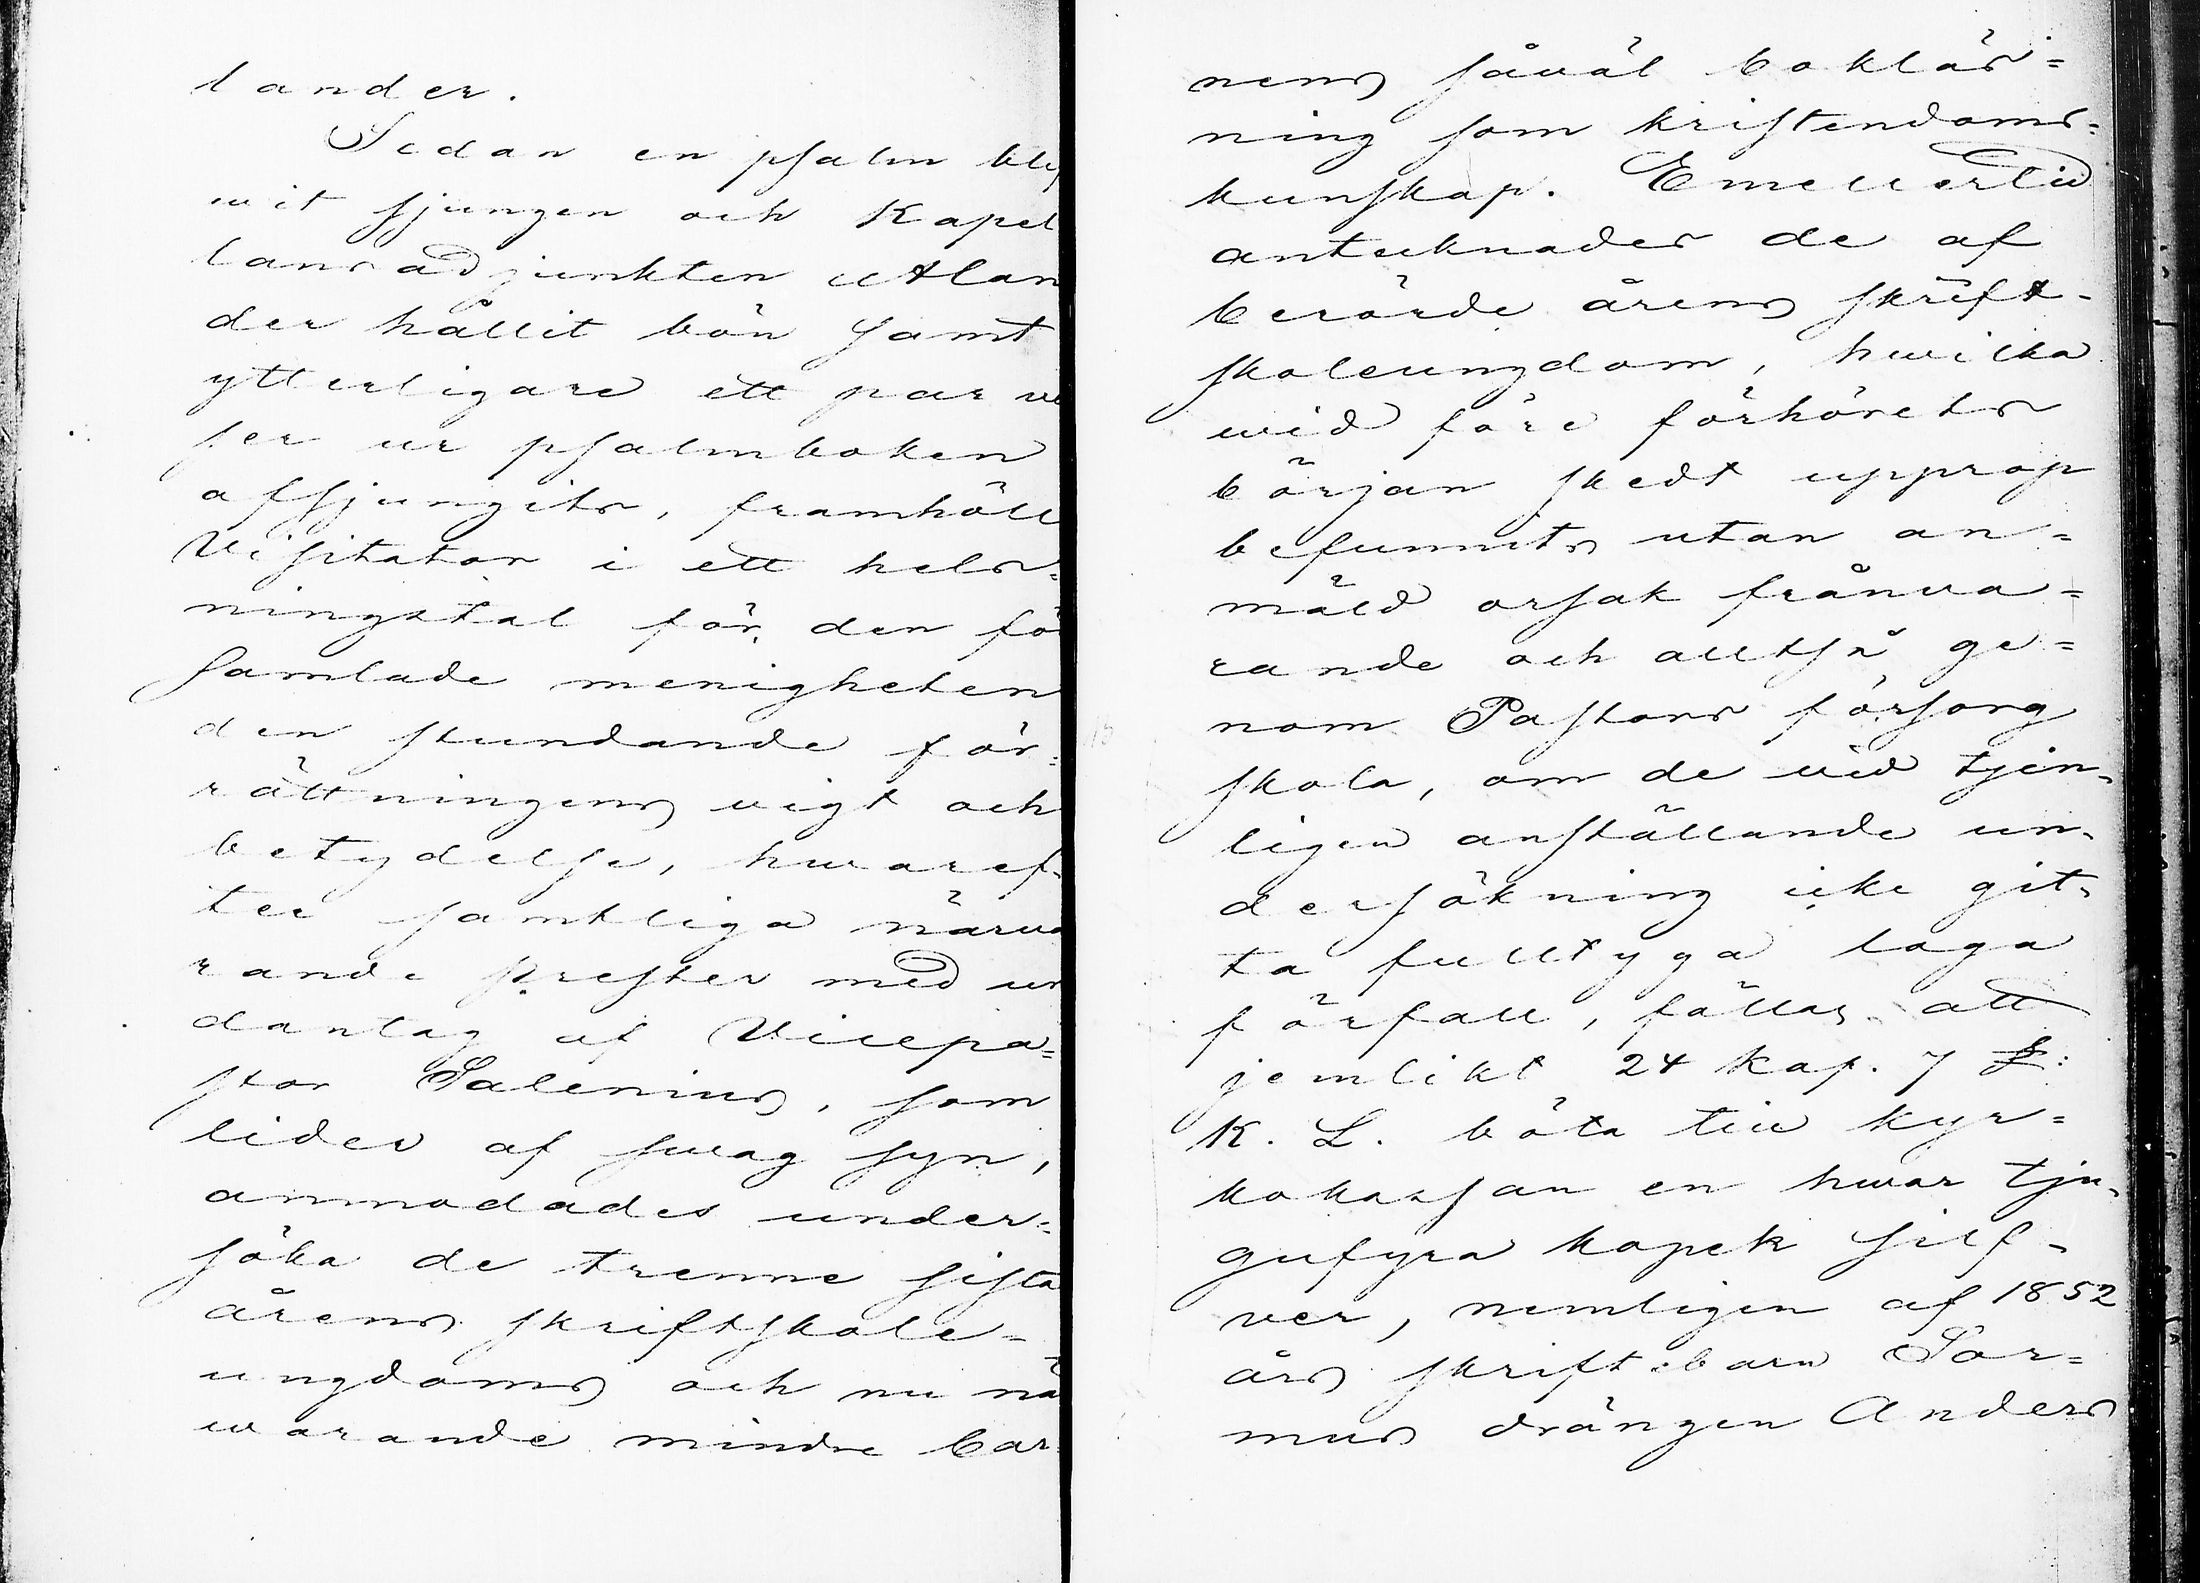 lander.
Sedan en psalm blif
wit sjungen och Kapel
lansadjunkten Alan
der hållit bön samt
ytterligare ett par ve
ser ur psalmboken
afsjungits, framhöll
Visitator i ett hels-
ningstal för den för
samlade menigheten
den stundande för-
rättningens vigt och
betydelse, hwaref-
ter samtliga närva
rande prester med un
dantag af Vicepa=
stor Salenius, som
lider af swag syn,
anmodades under=
söka de trenne sista
årens skriftskole=
ungdoms och nu nä
warande mindre bar=
nens såväl boklär=
ning som kristendoms=
kunskap. Emellertid
antecknades de af
berörde årens skrift-
skoleungdom, hwilka
wid före förhörets
början skedt upprop
befunnits utan an=
mäld orsak frånva=
rande och alltså ge=
nom Pastors försorg
skola, om de vid tjen-
ligen anställande un-
dersökning icke git-
ta fulltyga laga
förfall, fällas att
jemlikt 24 Kap. 7 §:
K. L. böta till kyr=
kokassan en hwar tju-
gufyra kopek silf-
ver, nemligen af 1852
års skriftebarn Sor=
mus drängen Anders